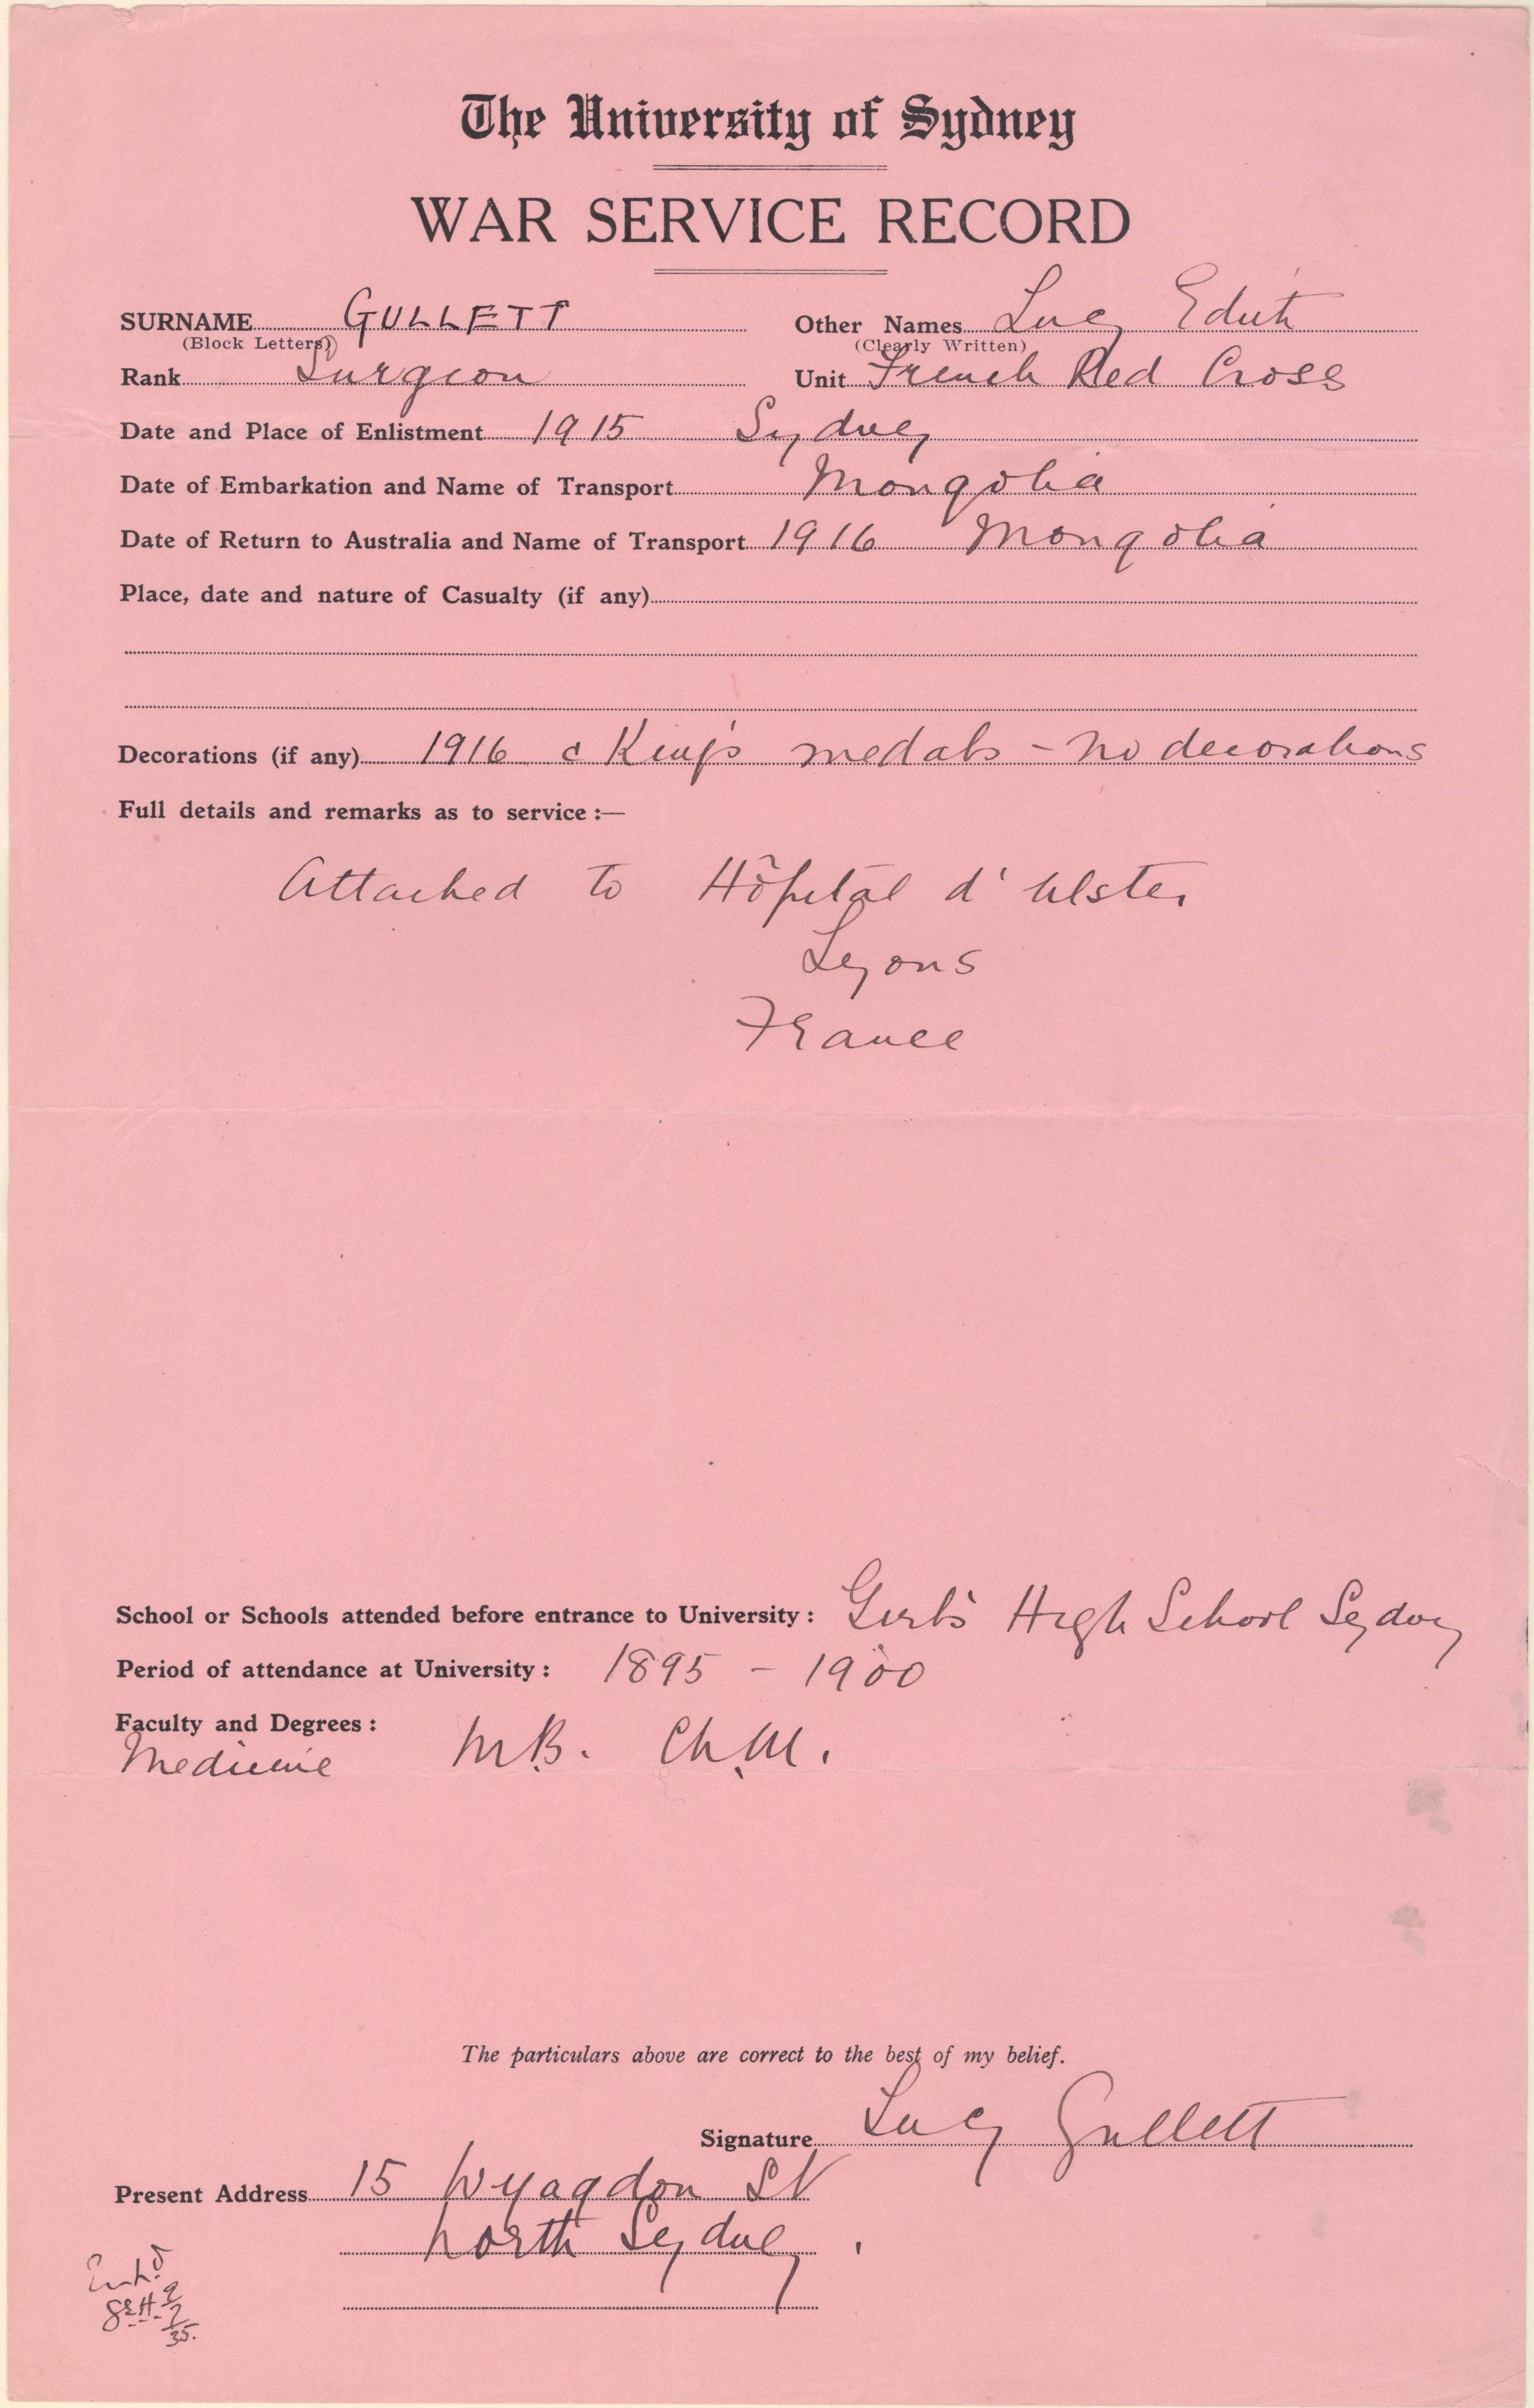 The University of Sydney
WAR SERVICE RECORD
SURNAME GULLETT Other Names Lucy Edith
(Block Letters) (Clearly Written)
Rank Surgeon Unit French Red Cross
Date and Place of Enlistment 1915 Sydney
Date of Embarkation and Name of Transport Mongolia
Date of Return to Australia and Name of Transport 1916 Mongolia
Place, date and nature of Casualty (if any)
Decorations (if any) 1916 King's medals - no decorations
Full details and remarks as to service :—
Attached to Hôpital d'Ulster
Lyons
France
School or Schools attended before entrance to University : Girls High School Sydney
Period of attendance at University : 1895 - 1900
Faculty and Degrees :
Medicine M.B. Ch.M.
The particulars above are correct to the best of my belief.
Signature Lucy Gullett
Present Address 15 Wyagdon St
North Sydney.
9/7/35.